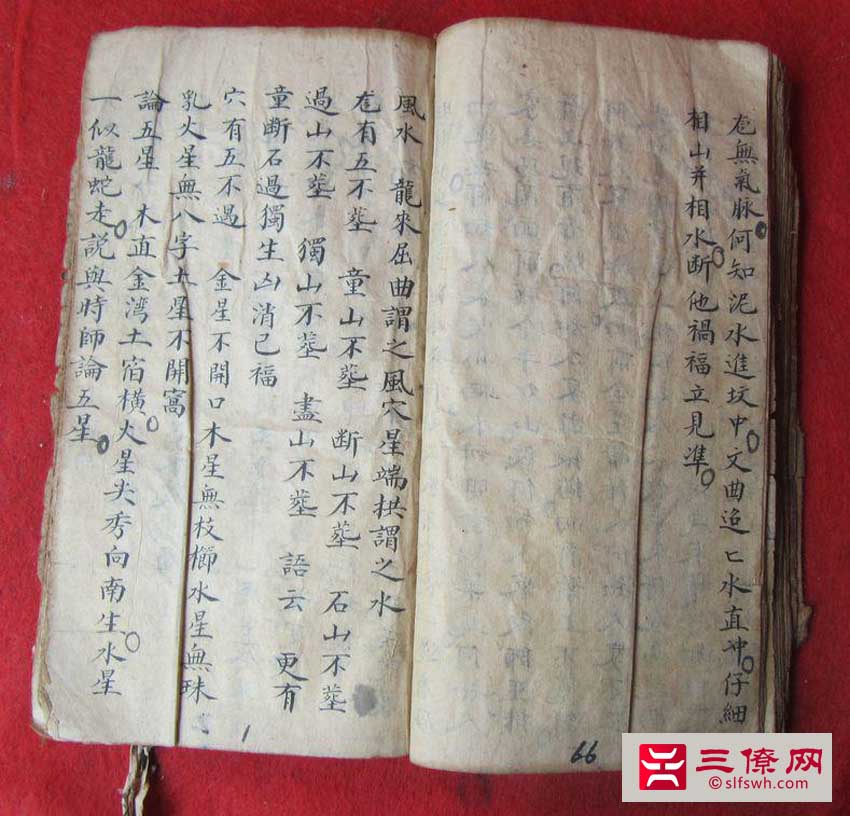 龙無氣脉何知泥水進坟中文曲迢匕水直冲仔細
相山并相水断他禍福立見準
66
風水 龍來屈曲謂之風穴星端拱謂之水
有五不塟 童山不塟 断山不塟 石山不塟
過山不塟 獨山不塟 盡山不塟 語云 更有
童断石過獨生凶消己福
穴有五不遇 金星不開口木星無枝櫛水星無珠
乳火星無八字土星不開窩
論五星 木直金湾土宿横火星尖秀向南生水星
一似龍蛇走説與時師論五星
1
三僚网
© slfswh.com